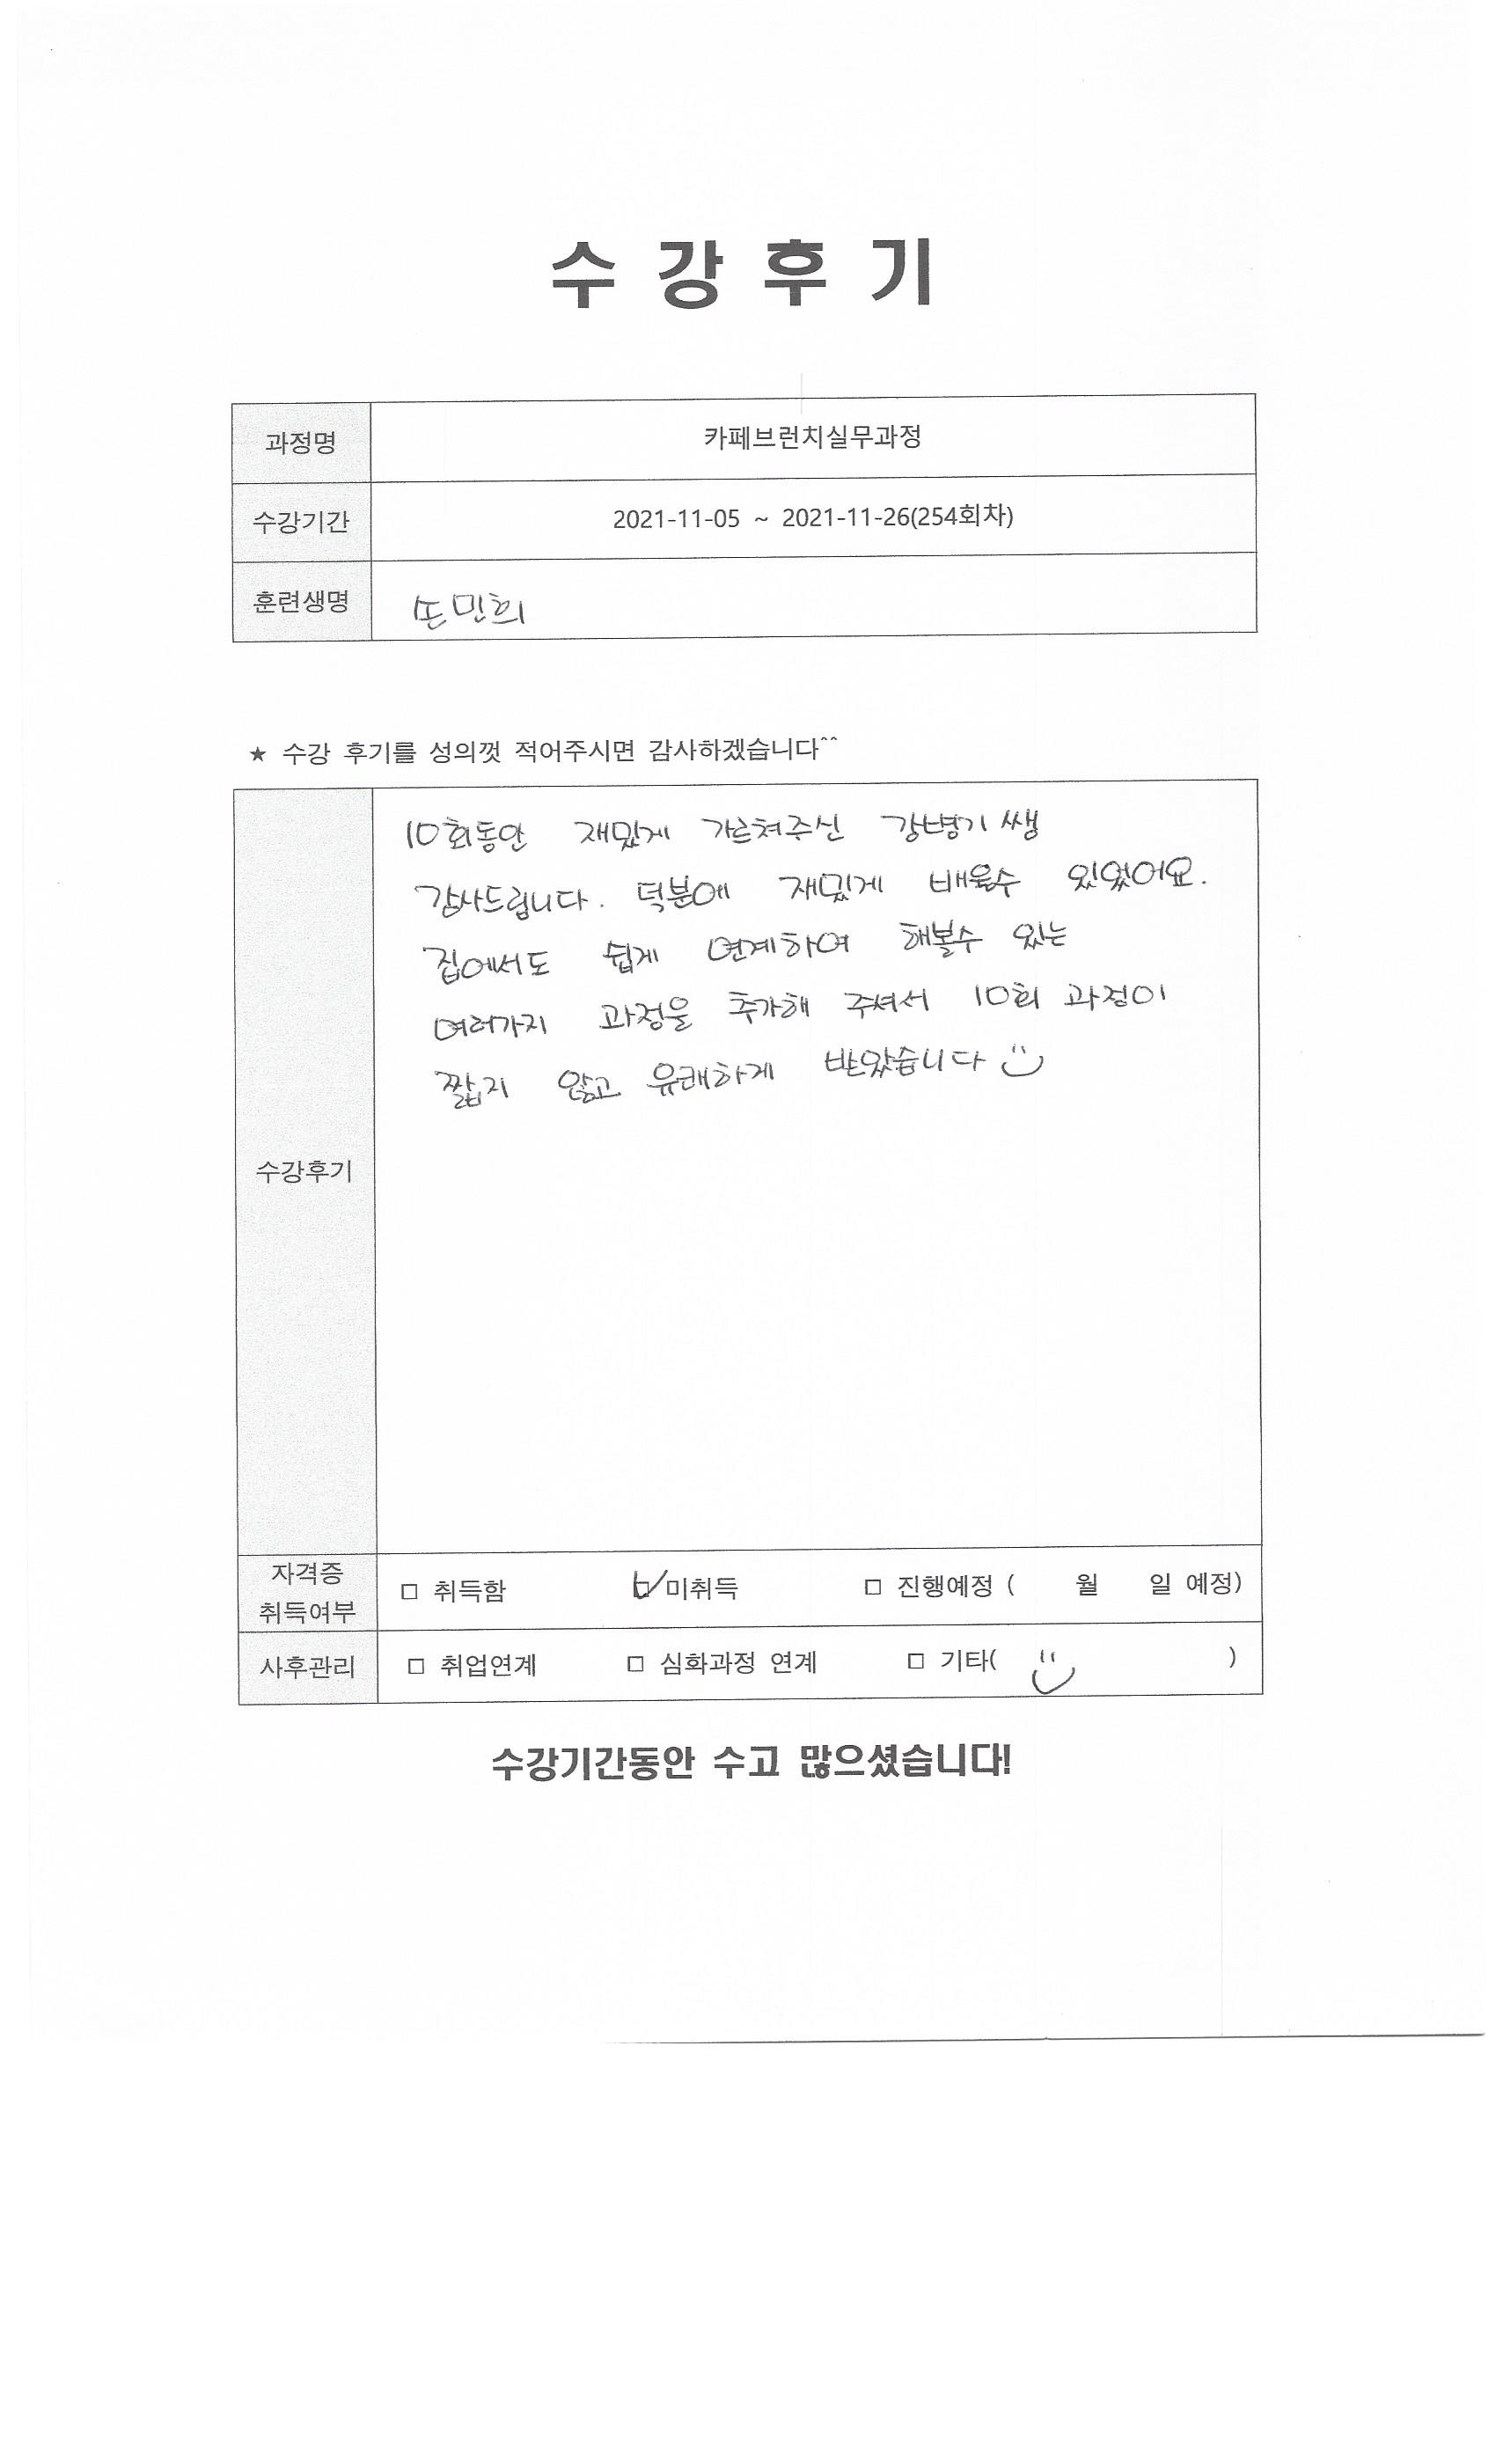 수 강 후 기
과정명 카페브런치실무과정
수강기간 2021-11-05 ~ 2021-11-26(254회차)
훈련생명 손민희
★ 수강 후기를 성의껏 적어주시면 감사하겠습니다^^
10회동안 재밌게 가르쳐주신 강병기 쌤
감사드립니다. 덕분에 재밌게 배울수 있었어요.
집에서도 쉽게 연계하여 해볼수 있는
여러가지 과정을 추가해 주셔서 10회 과정이
짧지 않고 유쾌하게 받았습니다
수강후기
자격증
취득여부
□ 취득함 ☑ 미취득 □ 진행예정 ( 월 일 예정)
사후관리 □ 취업연계 □ 심화과정 연계 □ 기타( )
수강기간동안 수고 많으셨습니다!